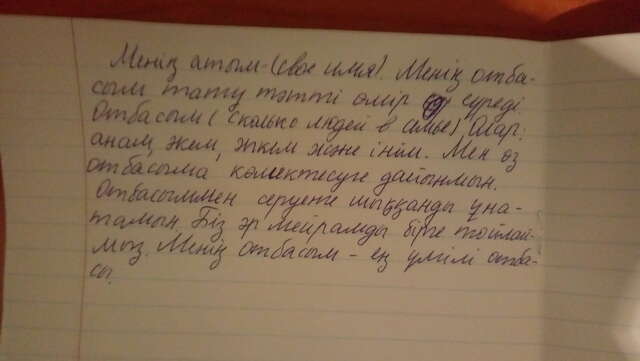 Менің атым - (свое имя). Менің отба-
сым тату тәтті өмір сүреді.
Отбасым (сколько людей в семье) Олар:
анам, әкем, әпкем және інім. Мен өз
отбасыма көмектесуге дайынмын.
Отбасыммен серуенге шыққанды ұна-
тамын. Біз әр мейрамды бірге тойлай-
мыз. Менің отбасым - ең үлгілі отба-
сы.